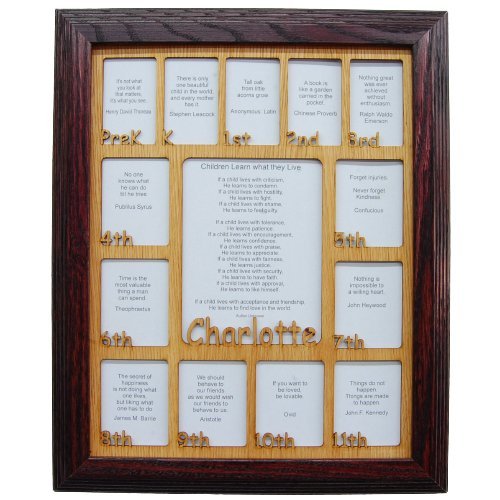 It's not what
you look at
that matters,
it's what you see.
Henry David Thoreau
PreK
There is only
one beautiful
child in the world,
and every mother
has it.
Stephen Leacock
K
Tall oak
from little
acorns grow.
Anonymous Latin
1st
A book is
like a garden
carried in the
pocket.
Chinese Proverb
2nd
Nothing great
was ever
achieved
without
enthusiasm.
Ralph Waldo
Emerson
3rd
No one
knows what
he can do
till he tries.
Publilius Syrus
4th
Children Learn what they Live
If a child lives with criticism,
He learns to condemn.
If a child lives with hostility,
He learns to fight.
If a child lives with shame,
He learns to feel guilty.
If a child lives with tolerance,
He learns patience.
If a child lives with encouragement,
He learns confidence.
If a child lives with praise,
He learns to appreciate
If a child lives with fairness,
He learns justice.
If a child lives with security,
He learns to have faith.
If a child lives with approval,
He learns to like himself.
If a child lives with acceptance and friendship,
He learns to find love in the world
Author Unknown
Charlotte
Forget injuries.
Never forget
Kindness.
Confucious
5th
Time is the
most valuable
thing a man
can spend.
Theophrastus
6th
Nothing is
impossible to
a willing heart.
John Heywood
7th
The secret of
happiness
is not doing what
one likes,
but liking what
one has to do.
James M Barrie
8th
We should
behave to
our friends
as we would wish
our friends to
behave to us.
Aristotle
9th
If you want to
be loved,
be lovable.
Ovid
10th
Things do not
happen.
Things are made
to happen.
John F. Kennedy
11th